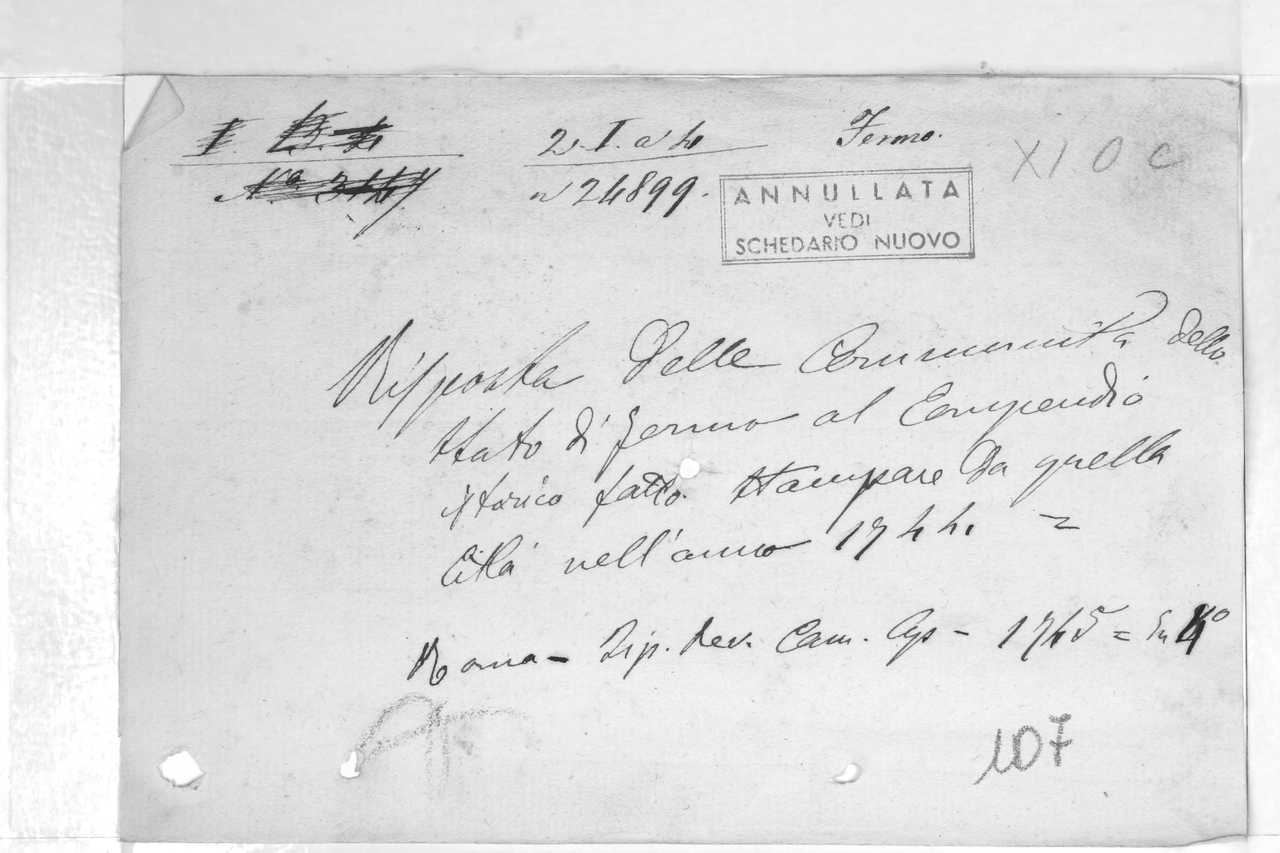 2. I. a 4
Fermo.
XI O C
n 24899.
ANNULLATA
VEDI
SCHEDARIO NUOVO
Risposta delle Communità dello
stato di fermo al Compendio
istorico fatto stampare da quella
Città nell'anno 1744. =
Roma - Tip. Rev. Cam. Ap - 1745 = In 4º
107